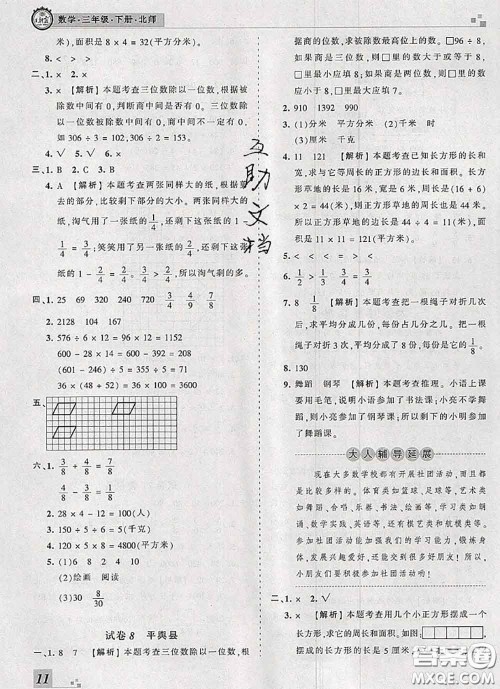 数学·三年级·下册·北师
米),面积是 8 × 4 = 32(平方分米)。
8. < > < >
二、1. × 2. √
3. × 【解析】本题考查三位数除以一位数,根据被
除数中间有 0,判断商中间是否有 0。三位数除
以一位数被除数中间有 0,商中间不一定有 0。
如 306 ÷ 3 = 102,306 ÷ 2 = 153。
4. √ 5. √ 6. ×
三、1. B 2. B 3. A
4. A 【解析】本题考查两张同样大的纸,根据要
去的部分,比较剩下部分的大小。两张同样大
的纸,淘气用了一张纸的1/4,还剩下这张纸的
1 - 1/4 = 3/4;笑笑用了另一张纸的2/4,还剩下这张
纸的 1 - 2/4 = 2/4,3/4 > 2/4,所以淘气剩的多。
四、1. 25 69 320 240 3/4 4/9 7/8
2. 2128 167
3. 576 ÷ 6 × 12 = 96 × 12 = 1152
600 - 28 × 14 = 600 - 392 = 208
360 + (561 - 546) ÷ 3 = 360 + 15 ÷ 3
= 360 + 5 = 365
五、
六、1. 3/8 + 4/8 = 7/8
2. 150 ÷ 2 = 75(千克)
3. 675 ÷ 5 ÷ 9 = 15(千克)
4. 5 × 20 = 100(人)
5. 120 × 5 × 8 = 4800(平方米)
6. (1)略
(2)绘画 阅读
(3)30 8/30
试卷 8 平舆县
一、1. 8 7 【解析】本题考查三位数除以一位数,根
据商的位数,求被除数最高位上的数。□96 ÷ 8,
如果商是三位数,则□里的数大于或等于 8,□
里最小应填 8;如果商是两位数,则□里的数小
于 8,□里最大应填 7。
2. 910 1392 990
3. (1)分米 平方分米 (2)千米 时
(3)厘米 千克
4. 11 121 【解析】本题考查已知长方形的长和
宽,求与它等周长的正方形的边长和面积。长方
形草地的长是 16 米,宽是 6 米,则长方形草地的
周长是(16 + 6) × 2 = 44(米)。正方形草坪的周
长是 44 米,则正方形的边长是 44 ÷ 4 = 11(米),
面积是 11 × 11 = 121(平方米)。
5. < > < >
6. 1/2 > 1/3 2/4 < 3/4
7. 8 1/8 【解析】本题考查把一根绳子对折几次
后,求平均分成几份,每份是几分之一。把一根
绳子对折 3 次,平均分成 8 份,每份是它的1/8。
8. 130
9. 舞蹈 钢琴 【解析】本题考查推理。小语上课
要用毛笔,说明小语参加了书法课;小亮不学
舞蹈,则小亮参加了钢琴课,所以,小灵参加
了舞蹈课。
大人辅导延展
现在大多数学校都有开展社团活动,而且都
是多样化的。体育类如篮球、足球等,艺术类
如舞蹈、合唱、乐器、书法、绘画等,学习类如朗
诵、数学实践、英语等,还有棋艺类和航模类等。
社团活动能加强我们的实践能力和学习能力,
参加社团活动能强健我们的体魄,所以,
小朋友们要积极参加社团活动!
二、1. × 2. √
3. × 【解析】本题考查用几个小正方形摆成一个
长方形,求它的长和宽。摆成的长方形如图:
互助文档
11
答案圈